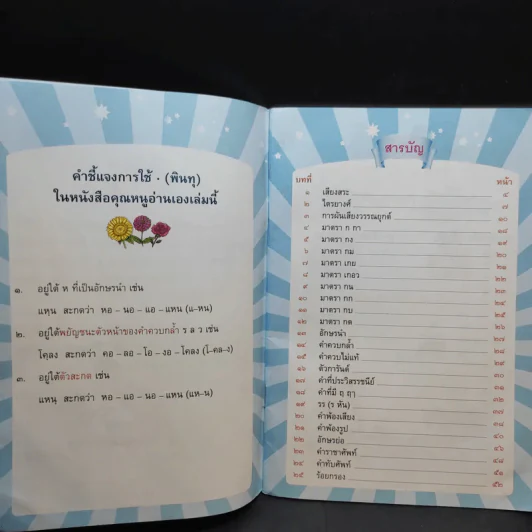 คำชี้แจงการใช้ . (พินทุ)
ในหนังสือคุณหนูอ่านเองเล่มนี้
๑. อยู่ใต้ ห ที่เป็นอักษรนำ เช่น
แหฺน สะกดว่า หอ - นอ - แอ - แหน (แ-หน)
๒. อยู่ใต้พยัญชนะตัวหน้าของคำควบกล้ำ ร ล ว เช่น
โคฺลง สะกดว่า คอ - ลอ - โอ - งอ - โคลง (โ-คล-ง)
๓. อยู่ใต้ตัวสะกด เช่น
แหนฺ สะกดว่า หอ - แอ - นอ - แหน (แห-น)
สารบัญ
บทที่ หน้า
๑ เสียงสระ ๕
๒ ไตรยางศ์ ๗
๓ การผันเสียงวรรณยุกต์ ๑๐
๔ มาตรา ก กา
๕ มาตรา กง
๖ มาตรา กม ๒๐
๗ มาตรา เกย
๘ มาตรา เกอว
๙ มาตรา กน
๑๐ มาตรา กก
๑๑ มาตรา กบ
๑๒ มาตรา กด
๑๓ อักษรนำ
๑๔ คำควบกล้ำ
๑๕ คำควบไม่แท้
๑๖ ตัวการันต์
๑๗ คำที่ประวิสรรชนีย์
๑๘ คำที่มี ฤ ฤๅ
๑๙ รร (ร หัน)
๒๐ คำพ้องเสียง
๒๑ คำพ้องรูป
๒๒ อักษรย่อ
๒๓ คำราชาศัพท์
๒๔ คำทับศัพท์ ๕๑
๒๕ ร้อยกรอง ๕๒